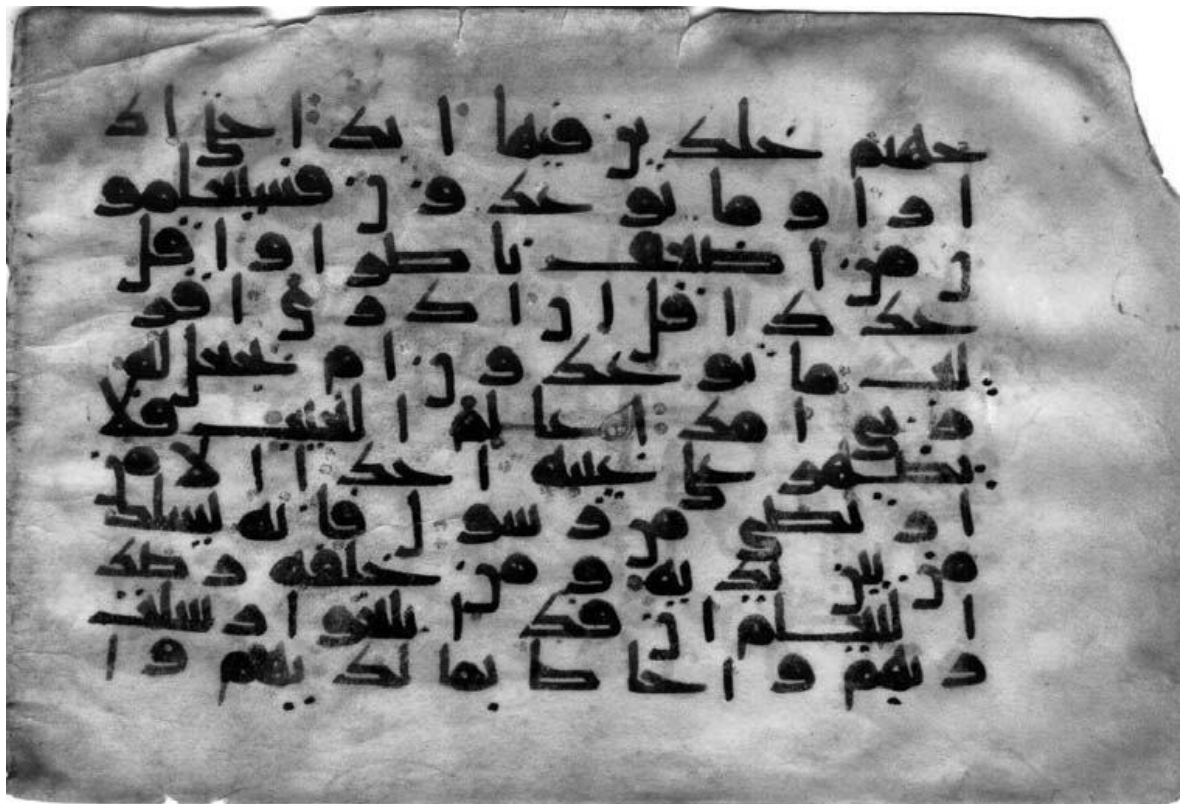 جهنم خلدين فيها ابدا حتى اذ
ا راو ما يوعدون فسيعلمو
ن من اضعف ناصرا واقل
عددا قل ان ادرى اقر
يب ما توعدون ام يجعل له
ربى امدا علم الغيب فلا
يظهر على غيبه احدا الا من
ارتضى من رسول فانه يسلك
من بين يديه ومن خلفه رصد
ا ليعلم ان قد ابلغوا رسلت
ربهم واحاط بما لديهم وا